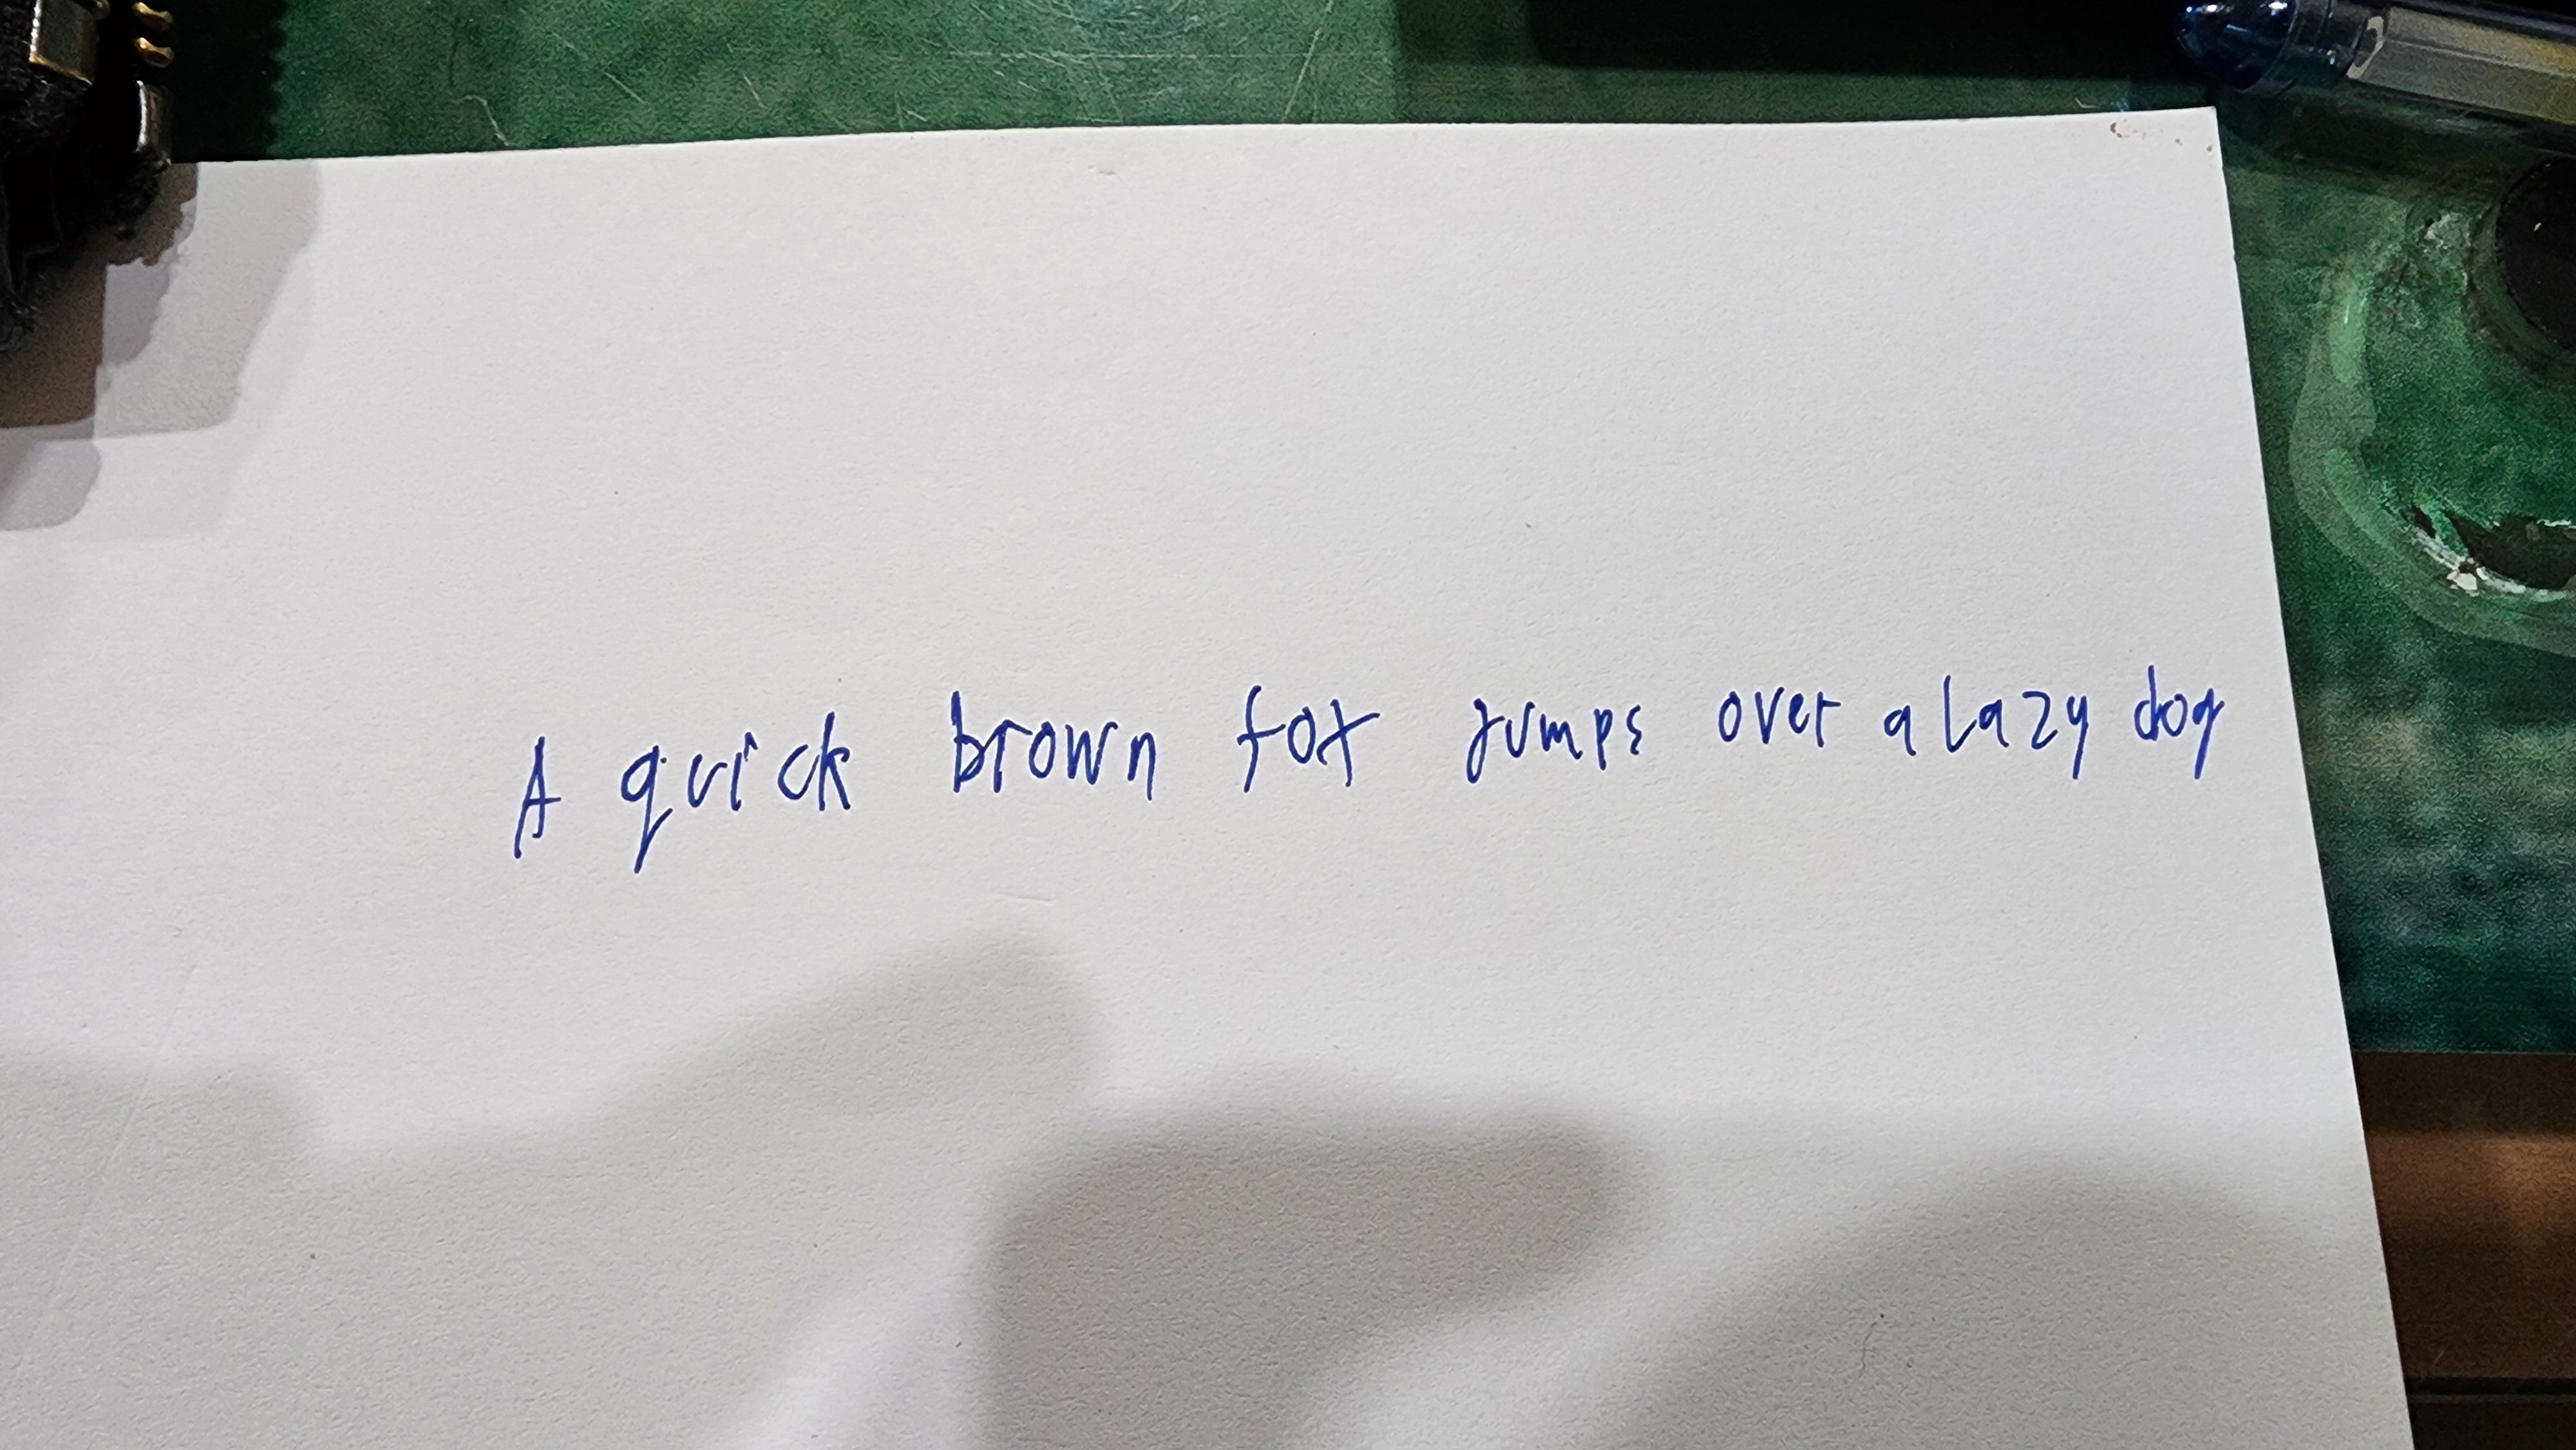 A quick brown fox jumps over a lazy dog